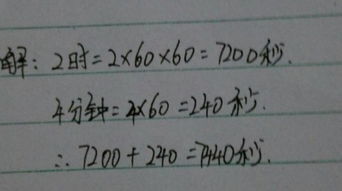 解：2时=2×60×60=7200秒.
4分钟=4×60=240秒.
∴ 7200+240=7440秒.